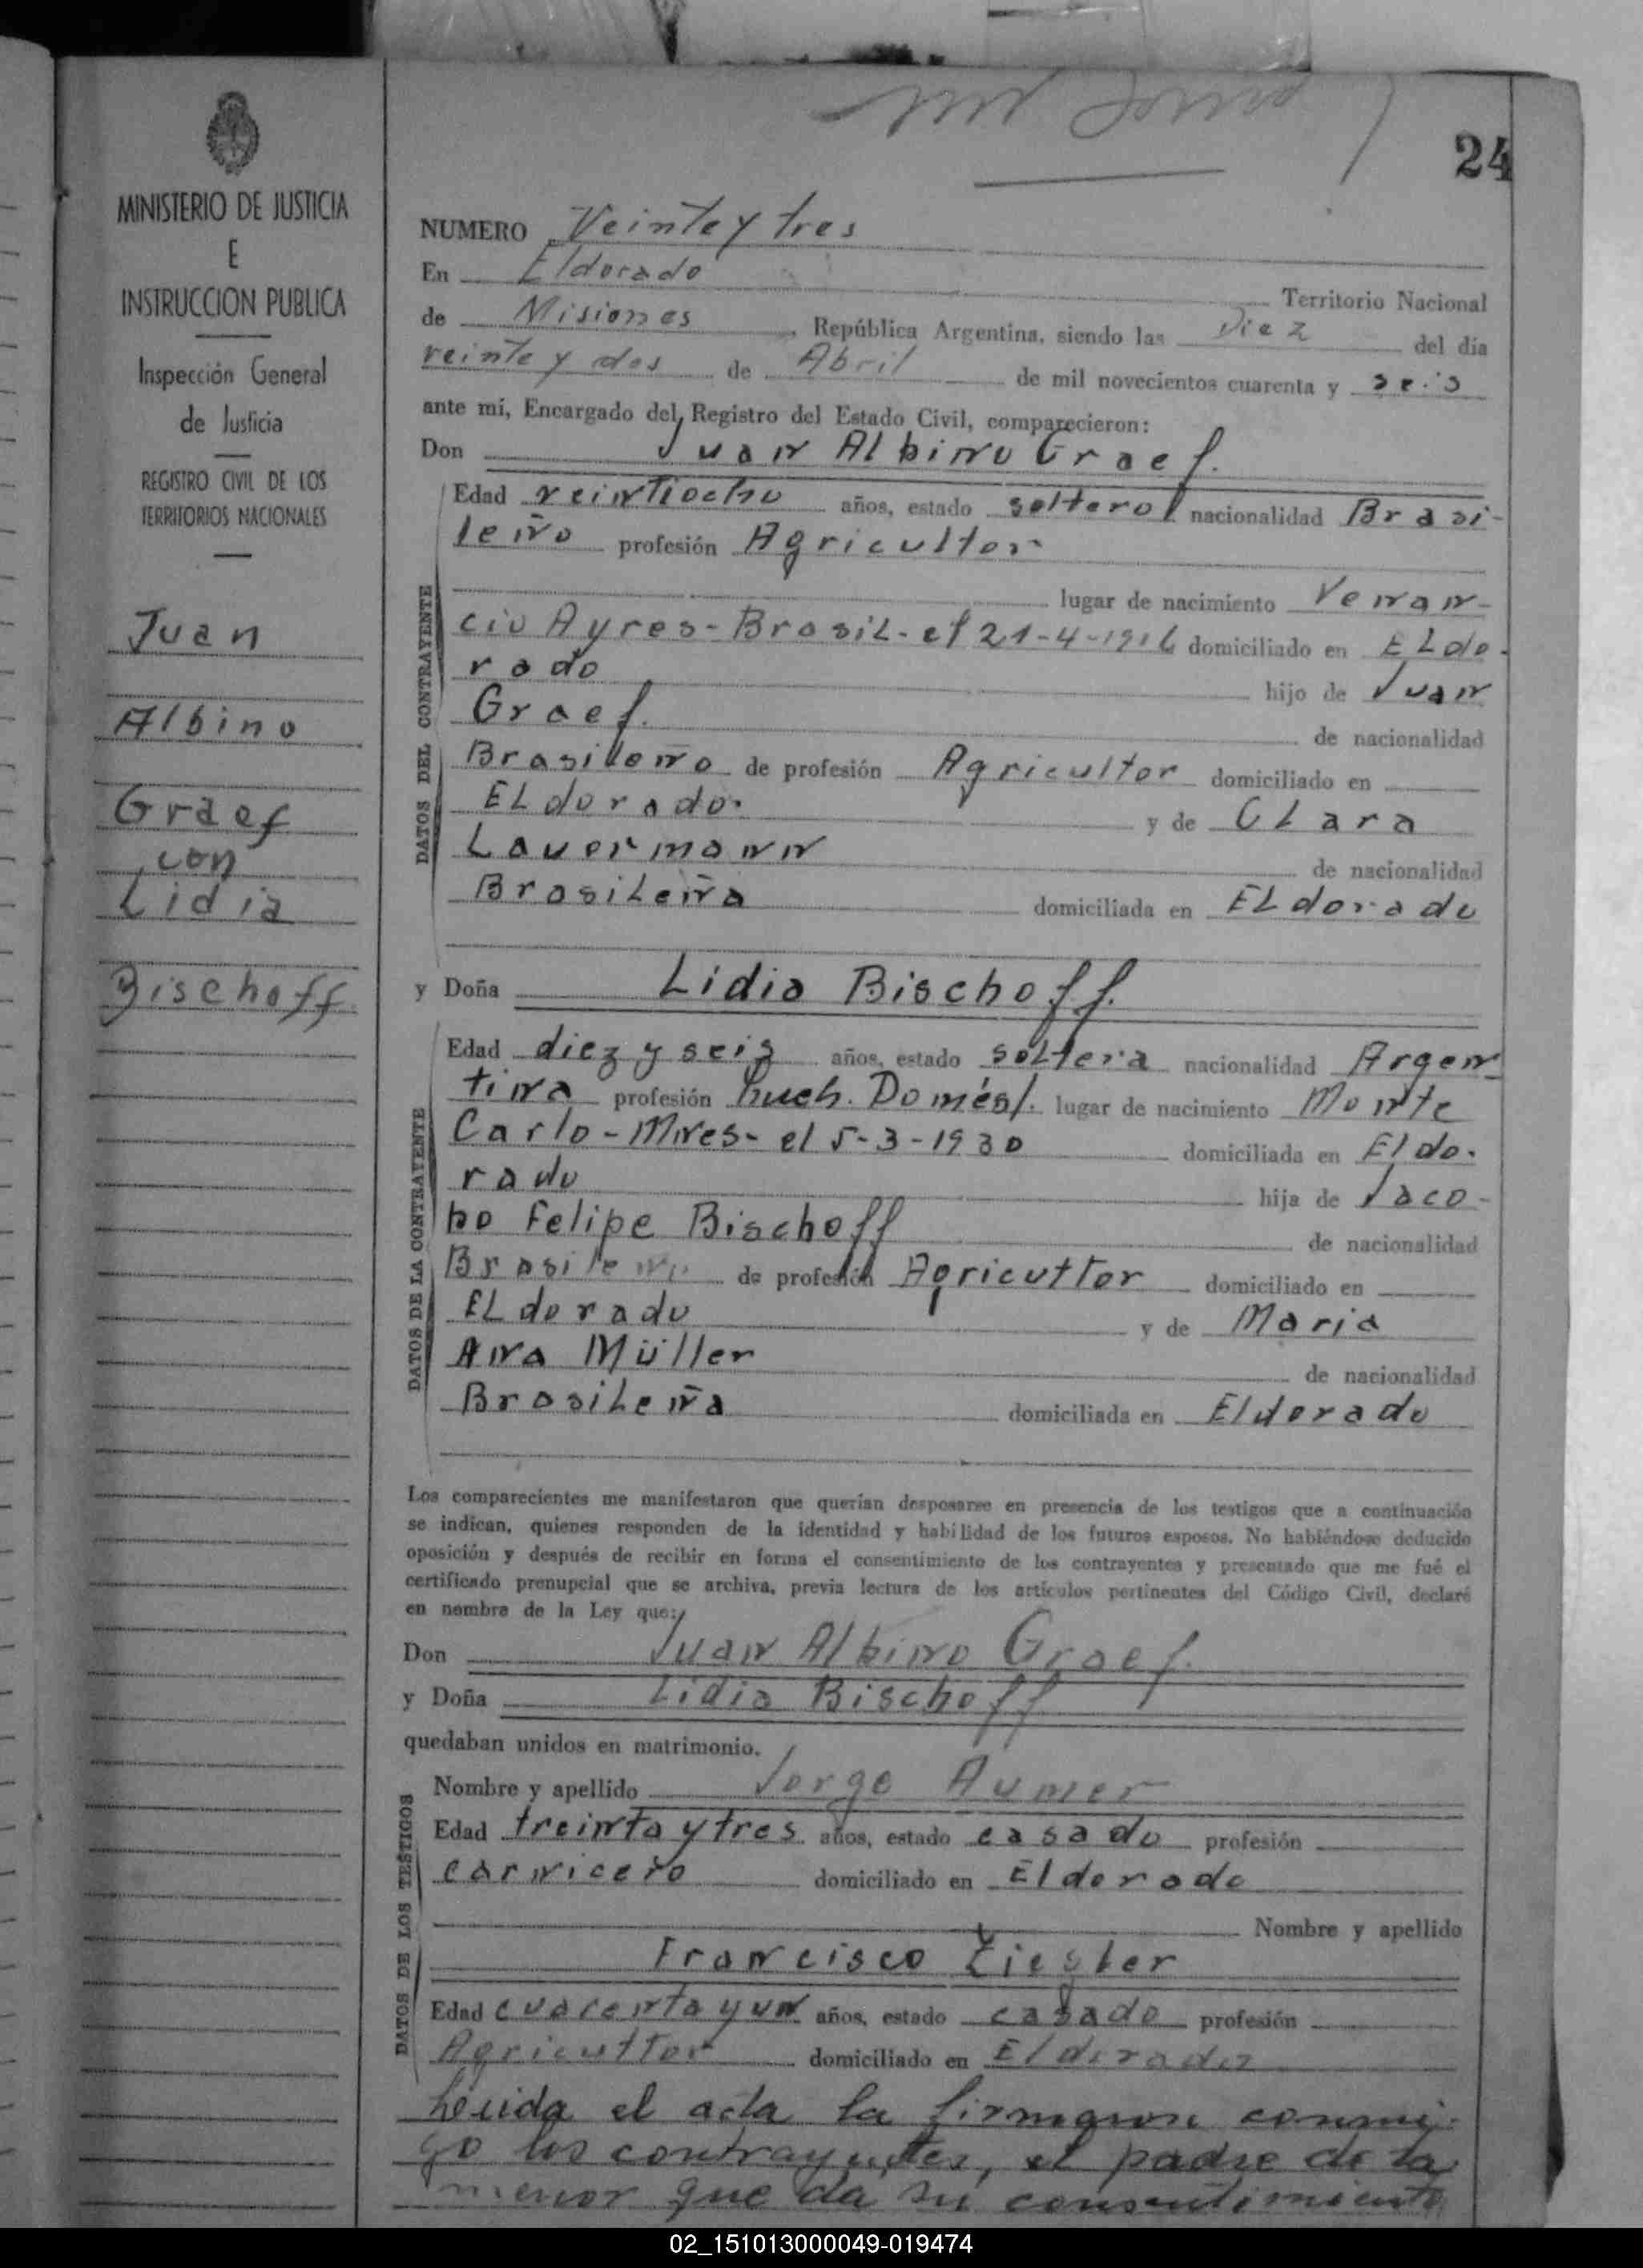 24
MINISTERIO DE JUSTICIA
E
INSTRUCCION PUBLICA
Inspección General
de Justicia
REGISTRO CIVIL DE LOS
TERRITORIOS NACIONALES
Juan
Albino
Graef
con
Lidia
Bischoff
NUMERO Veinte y tres
En Eldorado Territorio Nacional
de Misiones, República Argentina, siendo las Diez del día
veinte y dos de Abril de mil novecientos cuarenta y seis
ante mí, Encargado del Registro del Estado Civil, comparecieron:
Don Juan Albino Graef.
DATOS DEL CONTRAYENTE
Edad veintiocho años, estado soltero nacionalidad Brasi-
leño profesión Agricultor
lugar de nacimiento Venan-
cio Ayres-Brasil-el 21-4-1916 domiciliado en Eldo-
rado hijo de Juan
Graef. de nacionalidad
Brasileño de profesión Agricultor domiciliado en
Eldorado. y de Clara
Lauermann de nacionalidad
Brasileña domiciliada en Eldorado
y Doña Lidia Bischoff.
DATOS DE LA CONTRAYENTE
Edad diez y seis años, estado soltera nacionalidad Argen
tina profesión Domést. lugar de nacimiento Monte
Carlo-Mnes-el 5-3-1930 domiciliada en Eldo-
rado hija de Jaco-
bo Felipe Bischoff de nacionalidad
Brasileño de profesión Agricultor domiciliado en
Eldorado y de Maria
Ana Müller de nacionalidad
Brasileña domiciliada en Eldorado
Los comparecientes me manifestaron que querían desposarse en presencia de los testigos que a continuación
se indican, quienes responden de la identidad y habilidad de los futuros esposos. No habiéndose deducido
oposición y después de recibir en forma el consentimiento de los contrayentes y presentado que me fué el
certificado prenupcial que se archiva, previa lectura de los artículos pertinentes del Código Civil, declaré
en nombre de la Ley que:
Don Juan Albino Graef.
y Doña Lidia Bischoff
quedaban unidos en matrimonio.
DATOS DE LOS TESTIGOS
Nombre y apellido Jorge Aumer
Edad treinta y tres años, estado casado profesión
carnicero domiciliado en Eldorado
Nombre y apellido
Francisco
Edad cuarenta y un años, estado casado profesión
Agricultor domiciliado en Eldorado
Leída el acta la firmaron conmi-
go los contrayentes, el padre de la
menor que da su consentimiento
02_151013000049-019474